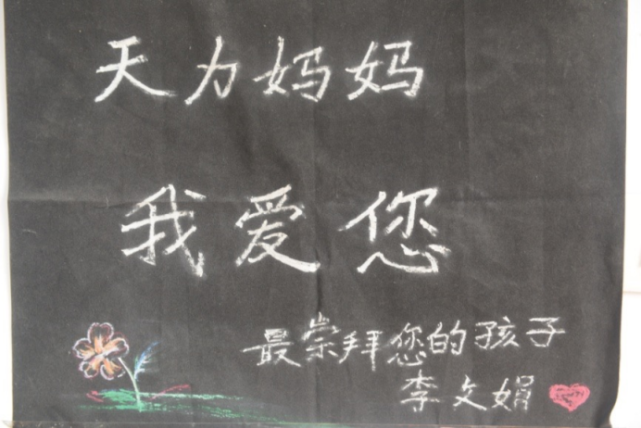 天力妈妈
我爱您
最崇拜您的孩子
李文娟